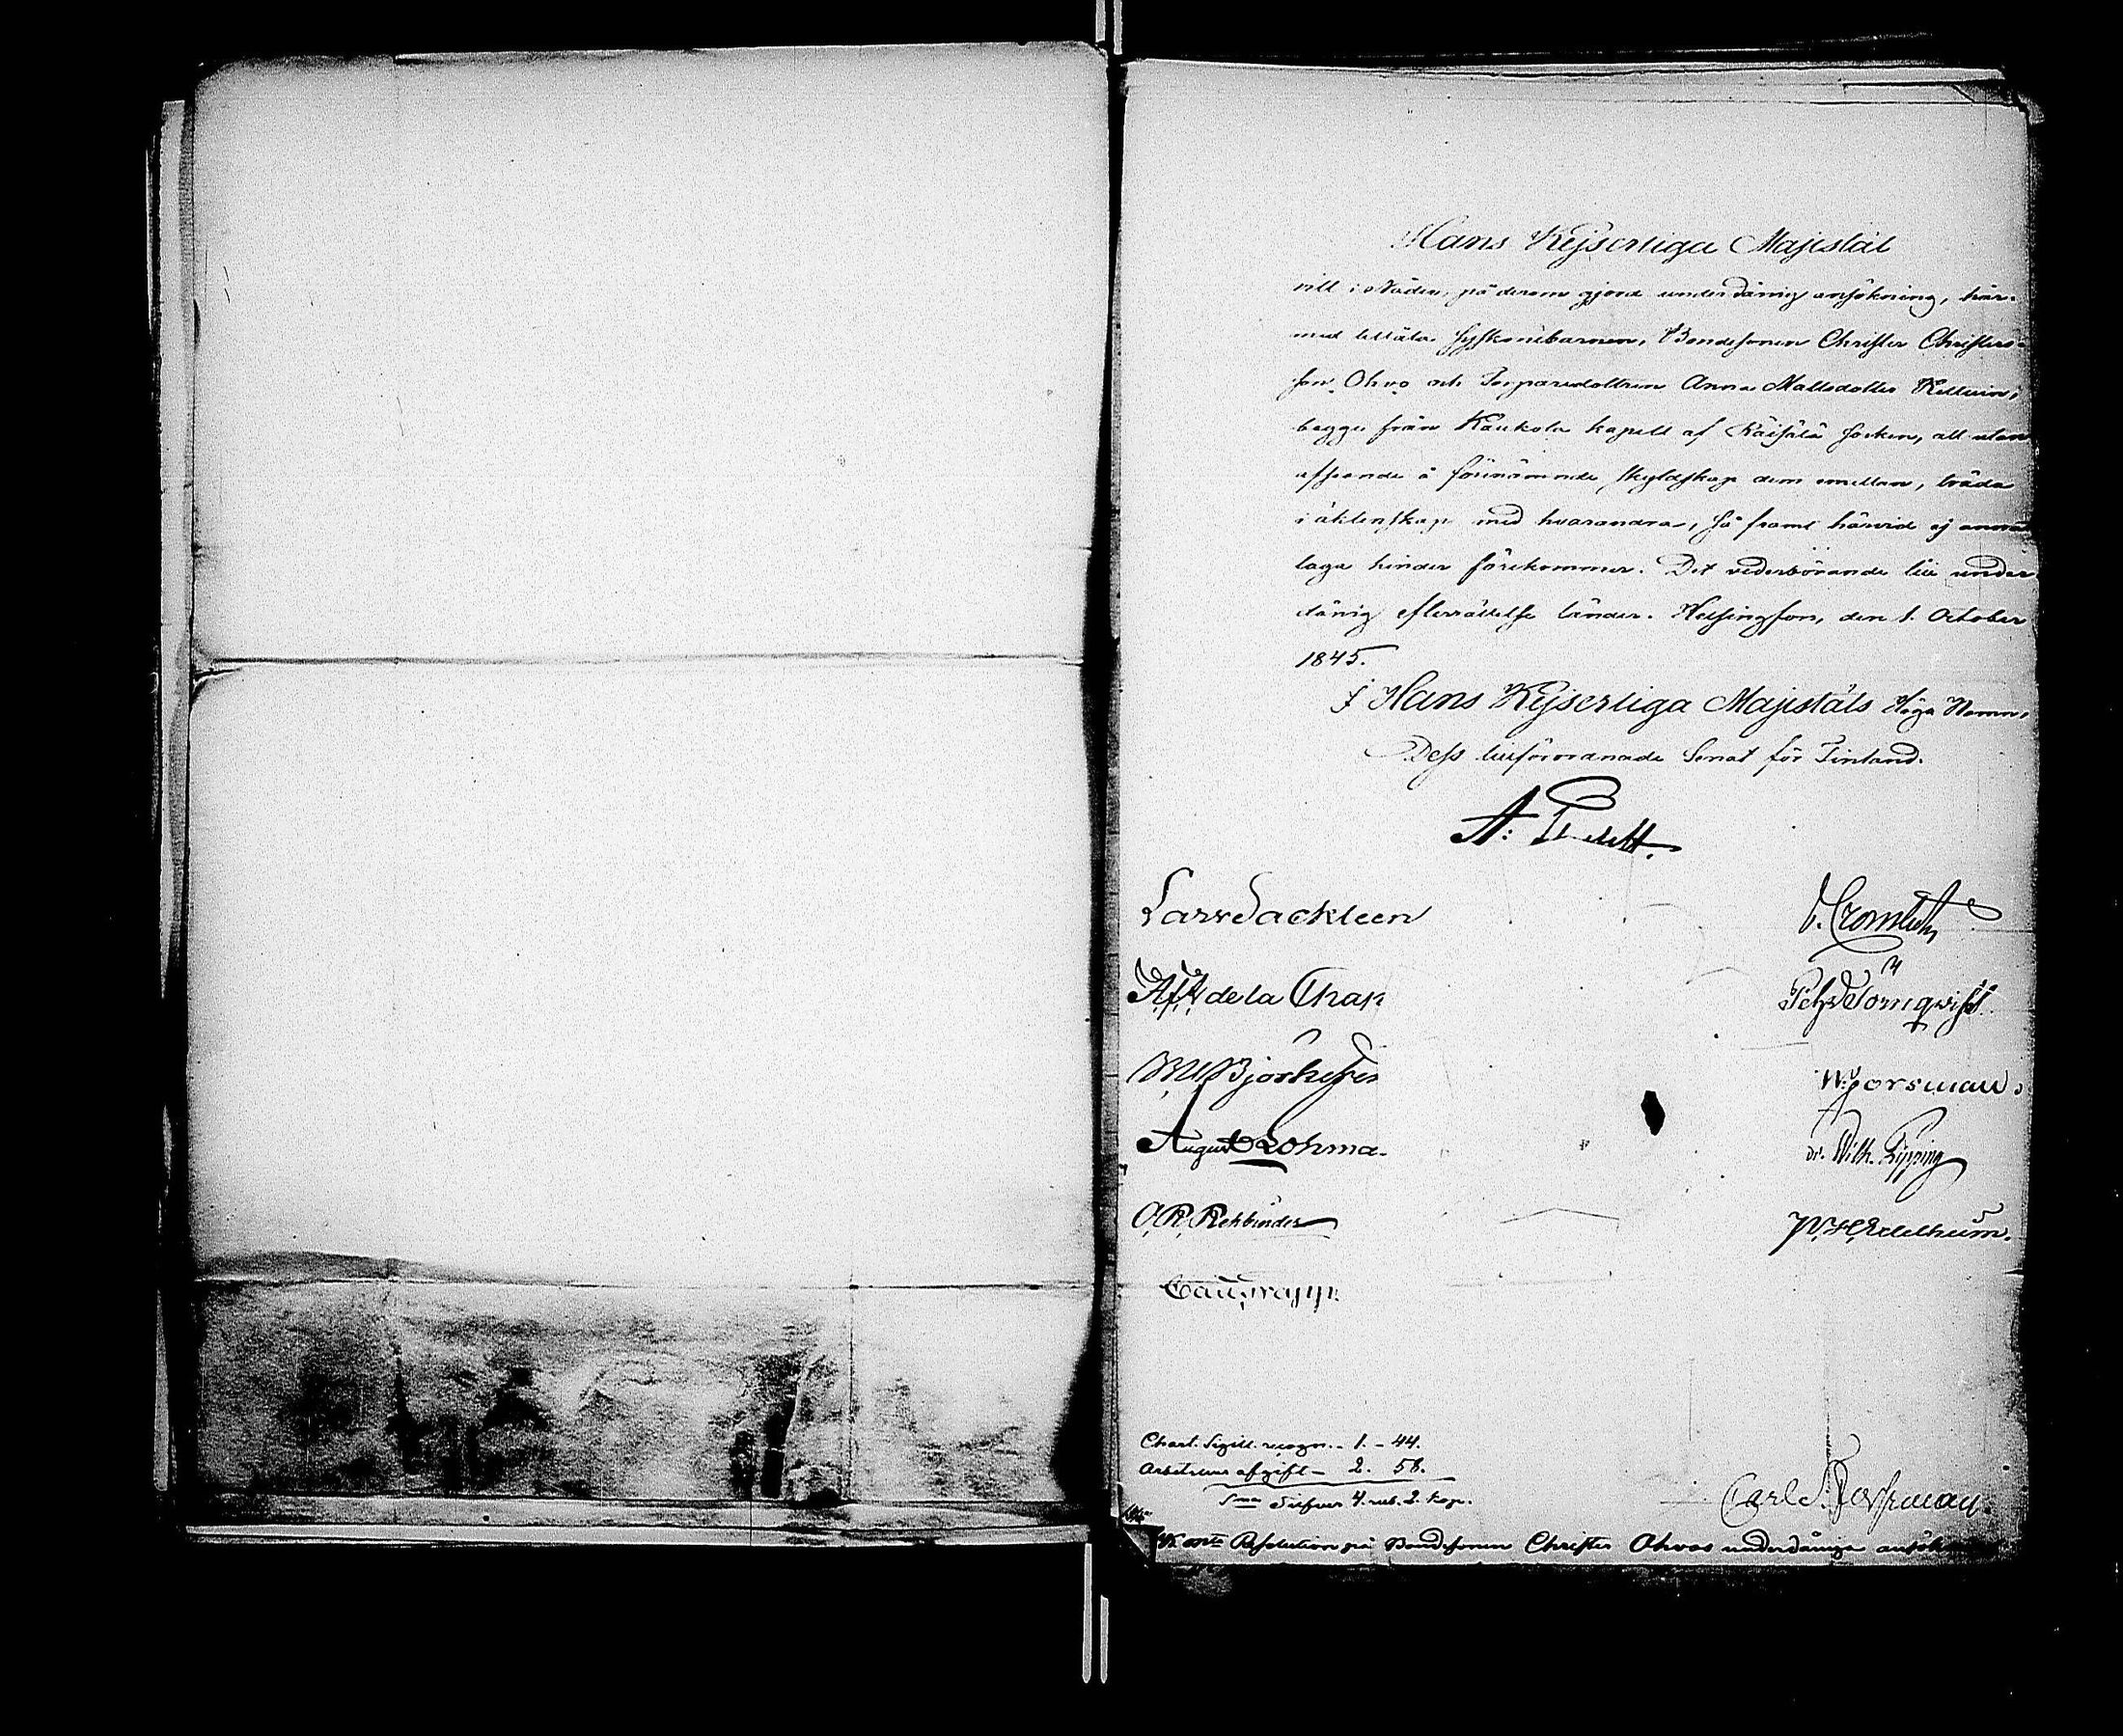 Hans Kejserliga Majestät
vill i Nåder, på derom gjord underdånig ansökning, här-
med tillåta syskonebarnen, Bondesonen Christer Christers-
son Ohvo och Torparedottren Anna Mattsdotter
begge från Kaukola kapell af Räisälä socken, att utan
afseende å förenämnde skyldskap dem emellan, träda
i äktenskap med hvarandra, så framt härvid ej annat
laga hinder förekommer. Det vederbörande till under-
dånig efterrättelse länder. Helsingfors, den 1. October
1845.
I Hans Kejserliga Majestäts Höga Namn,
Dess tillförordnade Senat för Finland.
Lars Sackleen
de la Chap
Törnqwist
Björkesten
W. Forsman
August Lohma
Wilh. Pipping
O. R. Rehbinder
Edelheim.
Chart. Sigill. recogn. - 1. - 44.
Arbetrums afgift - 2. 58.
S:ma Silfver 4. rub. 2. kop.
Carl Forsman
Resolution på Bondesonen Christer Ohvos underdåniga